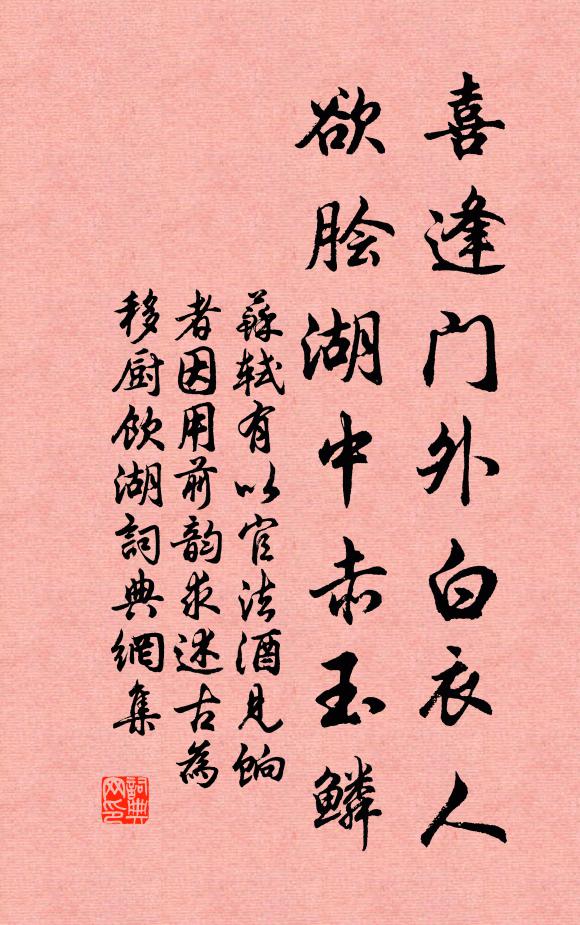 喜逢门外白衣人
欲脍湖中赤玉鳞
苏轼有以官法酒见饷
者因用前韵求述古为
移厨饮湖词典网集
词典
网印